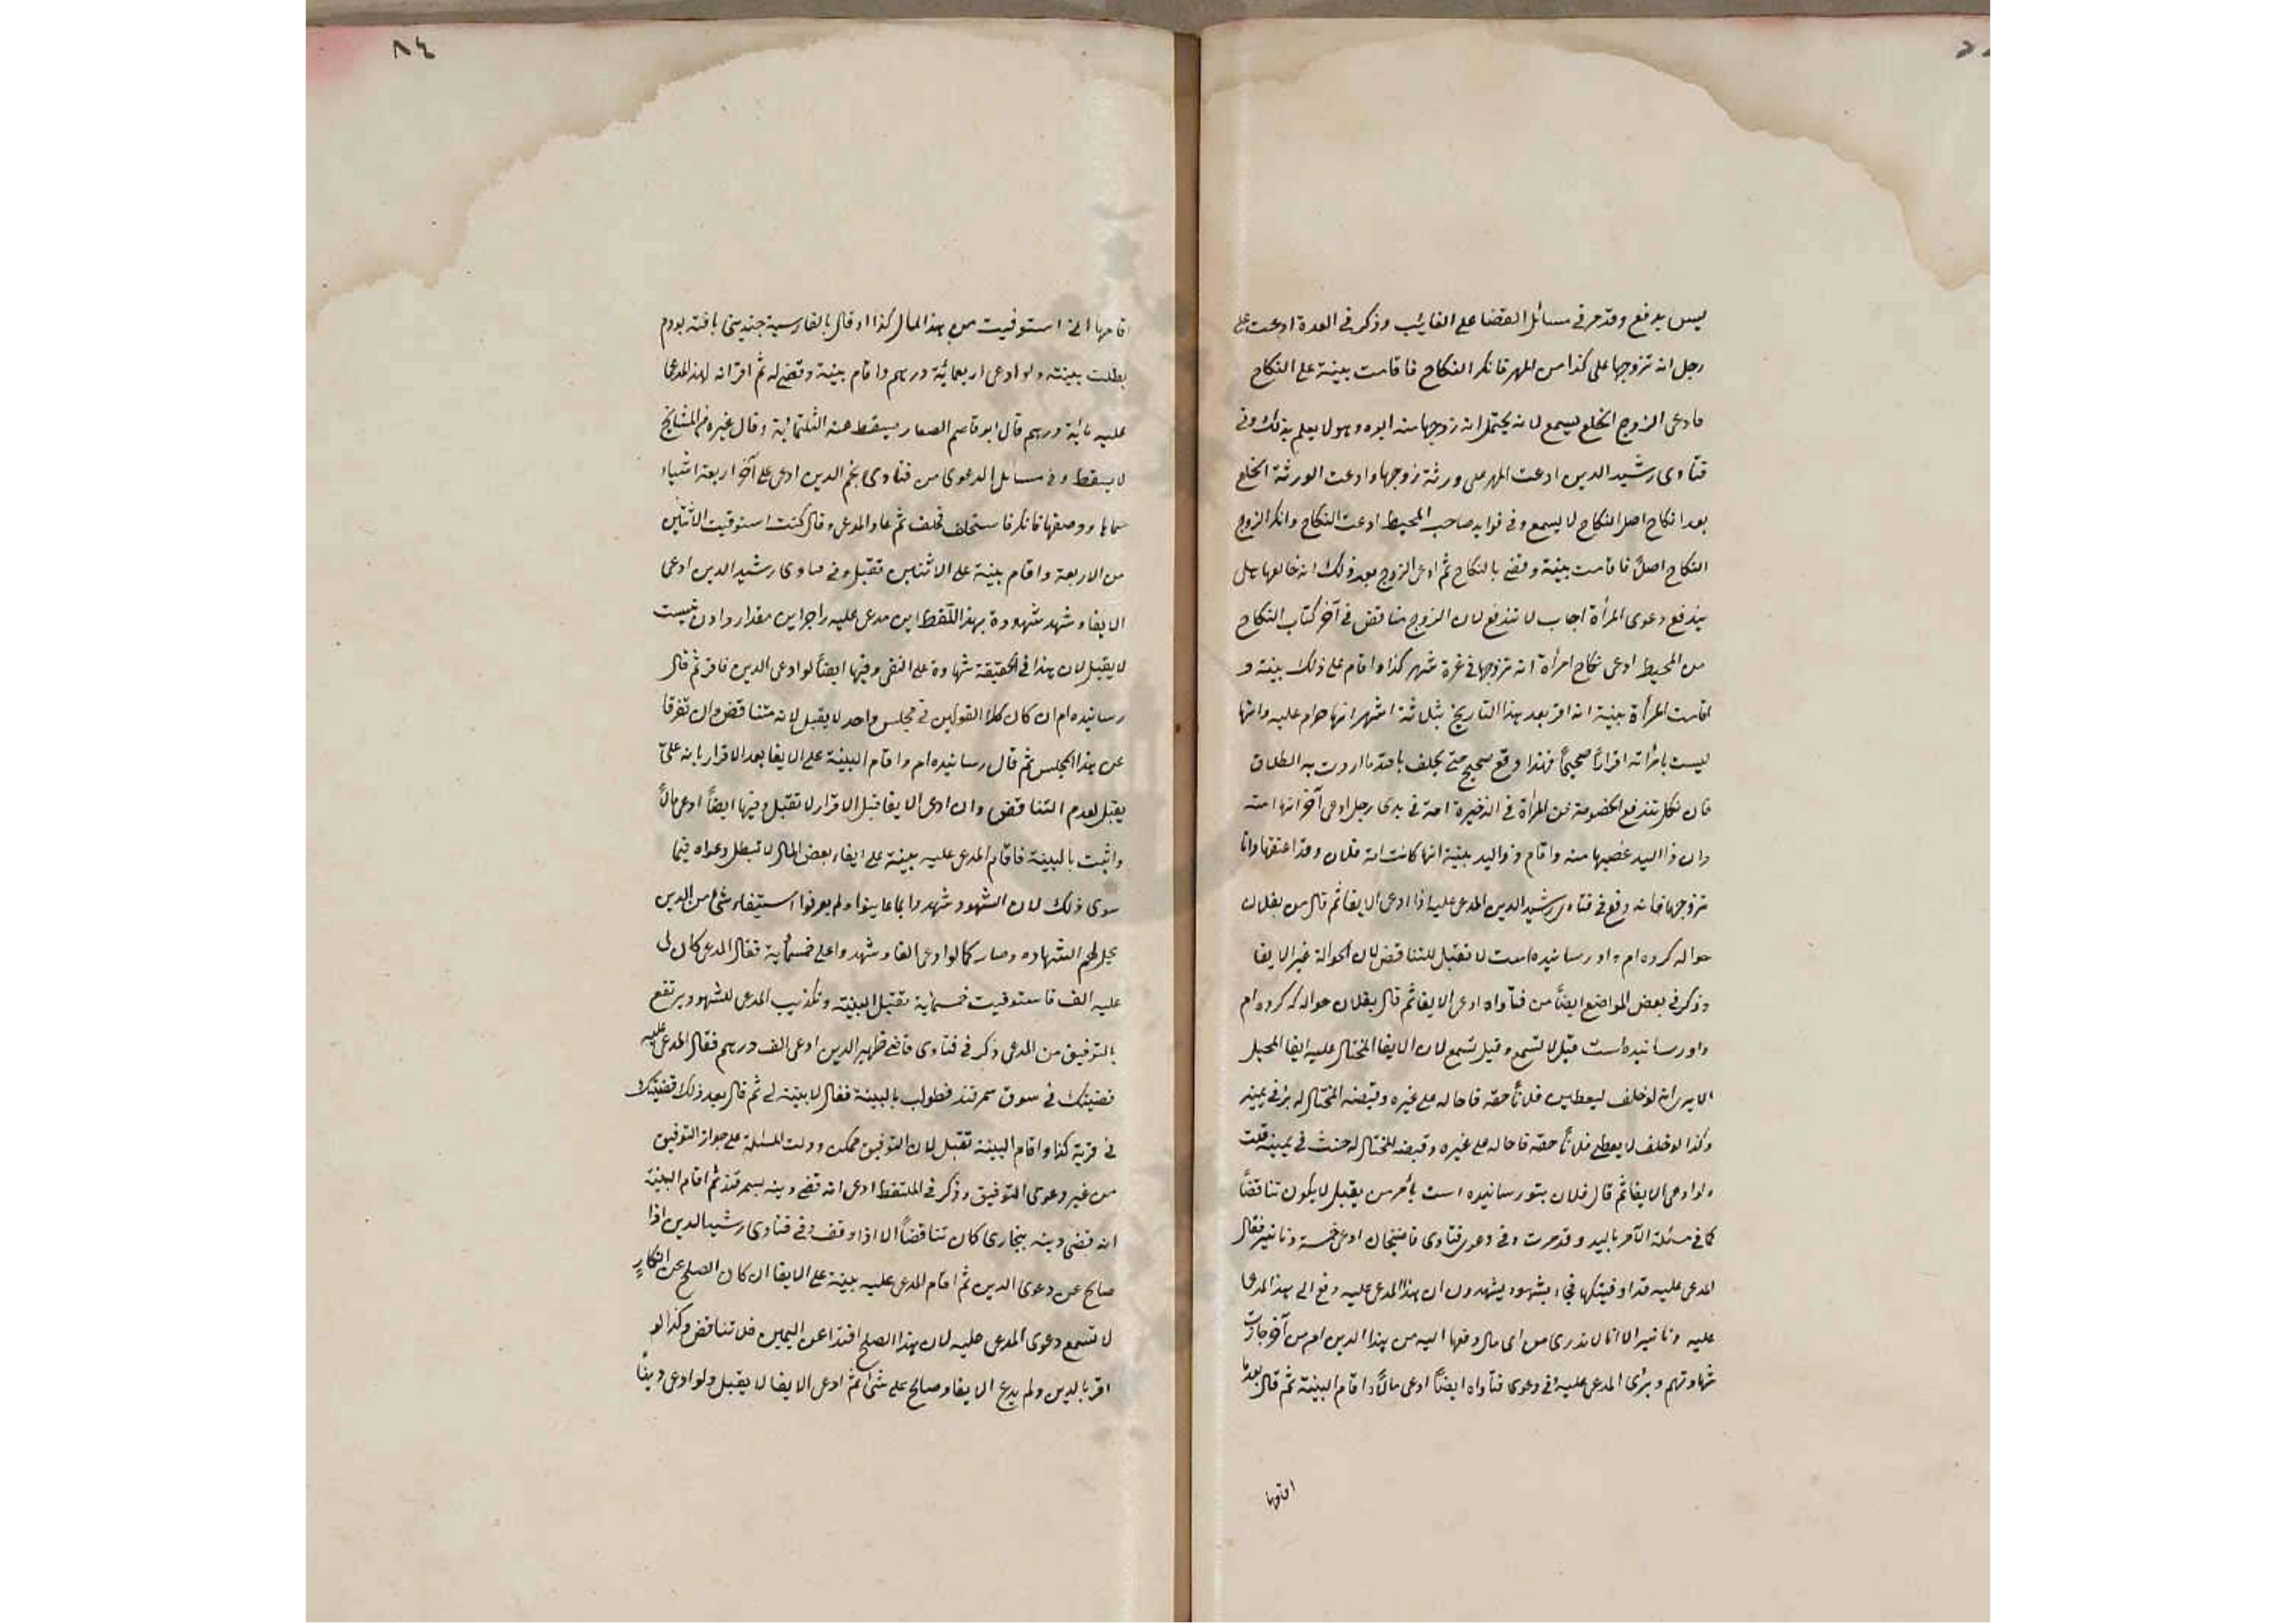 ليس بدفع وقد مر في مسائل القضا على الغايب وذكر في العدة ادعت على
رجل انه تزوجها على كذا من المهر فانكر النكاح فاقامت بينة على النكاح
فادعى الزوج الخلع يسمع لانه يحتمل انه زوجها منه ابوه وهو لا يعلم بذلك وفي
فتاوى رشيد الدين ادعت المهر على ورثة زوجها وادعت الورثة الخلع
بعد انكاح اصل النكاح لا يسمع وفي فوايد صاحب المحيط ادعت النكاح وانكر الزوج
النكاح اصلا فاقامت بينة وقضى بالنكاح ثم ادعى الزوج بعد ذلك انه خالعها هل
يندفع دعوى المرأة اجاب لا تندفع لان الزوج متناقض في آخر كتاب النكاح
من المحيط ادعى نكاح امرأة انه تزوجها في غرة شهر كذا واقام على ذلك بينة و
اقامت المرأة بينة انه اقر بعد هذا التاريخ بثلاثة اشهر انها حرام عليه وانها
ليست بامرأته اقرارا صحيحا فهذا دفع صحيح حتى يحلف بالله ما اردت به الطلاق
فان نكل تندفع الخصومة عن المرأة في الذخيرة امة في يدى رجل ادعى آخر انها امته
وان ذا اليد غصبها منه واقام ذو اليد بينة انها كانت امة فلان وقد اعتقها وانا
تزوجها فانه دفع في فتاوى رشيد الدين المدعى عليه اذا ادعى الايفا ثم قال من بفلان
حواله كرده ام واو رسانيده است لا تقبل للتناقض لان الحوالة غير الايفا
وذكر في بعض المواضع ايضا من فتاواه ادعى الايفا ثم قال بفلان حواله كرده ام
واو رسانيده است قيل لا تسمع وقيل تسمع لان ايفا المحتال عليه ايفا المحيل
الا يرى انه لو حلف ليعطين فلانا حقه فاحاله على غيره وقبضه المحتال له بر في يمينه
وكذا لو حلف لا يعطى فلانا حقه فاحاله على غيره وقبضه المحتال له حنث في يمينه قلت
ولو ادعى الايفا ثم قال فلان بتو رسانيده است بأمر من يقبل لا يكون تناقضا
كما في مسئلة الآمر باليد وقد مرت وفي دعوى فتاوى قاضيخان ادعى خمسة دنانير فقال
المدعى عليه قد اوفيتكها فجاء بشهود يشهدون ان هذا المدعى عليه دفع الى هذا المدعى
عليه دنانير الا انا لا ندرى من اى مال دفعها اليه من هذا الدين ام من آخر جازت
شهادتهم وبرئ المدعى عليه وفي دعوى فتاواه ايضا ادعى مالا واقام البينة ثم قال بعدما
اقامها
٨٤
اقامها انى استوفيت من هذا المال كذا او قال بالفارسية چنديني يافته بودم
بطلت بينته ولو ادعى اربعمائة درهم واقام بينة وقضى له ثم اقر انه لهذا المدعى
عليه مائة درهم قال ابو قاسم الصفار يسقط عنه الثلثمائة وقال غيره من المشايخ
لا يسقط وفي مسائل الدعوى من فتاوى نجم الدين ادعى على آخر اربعة اشياء
سماها ووصفها فانكر فاستحلف فحلف ثم عاد المدعى وقال كنت استوفيت الاثنين
من الاربعة واقام بينة على الاثنين تقبل وفي فتاوى رشيد الدين ادعى
الايفاء وشهد شهوده بهذا اللفظ اين مدعى عليه را جز اين مقدار دادنى نيست
لا يقبل لان هذا في الحقيقة شهادة على النفى وفيها ايضا لو ادعى الدين فاقر ثم قال
رسانيده ام ان كان كلا القولين في مجلس واحد لا يقبل لانه متناقض وان تفرقا
عن هذا المجلس ثم قال رسانيده ام واقام البينة على الايفا بعد الاقرار بانه على
يقبل لعدم التناقض وان ادعى الايفا قبل الاقرار لا تقبل وفيها ايضا ادعى مالا
واثبت بالبينة فاقام المدعى عليه بينة على ايفاء بعض المال لا تبطل دعواه فيما
سوى ذلك لان الشهود شهدوا بما عاينوا ولم يعرفوا استيفاء شئ من الدين
يحل لهم الشهاده وصار كما لو ادعى الفا وشهدوا على خمسمائة فقال المدعى كان لى
عليه الف فاستوفيت خمسمائة تقبل البينة وتكذيب المدعى للشهود يرتفع
بالتوفيق من المدعى ذكر في فتاوى قاضى ظهير الدين ادعى الف درهم فقال المدعى عليه
قضيتك في سوق سمرقند فطولب بالبينة فقال لا بينة لى ثم قال بعد ذلك قضيتك
في قرية كذا واقام البينة تقبل لان التوفيق ممكن ودلت المسئلة على جواز التوفيق
من غير دعوى التوفيق وذكر في الملتقط ادعى انه قضى دينه بسمرقند ثم اقام البينة
انه قضى دينه ببخارى كان تناقضا الا اذا وفق وفي فتاوى رشيد الدين اذا
صالح عن دعوى الدين ثم اقام المدعى عليه بينة على الايفا ان كان الصلح عن انكار
لا تسمع دعوى المدعى عليه لان هذا الصلح افتدا عن اليمين فلا تناقض وكذا لو
اقر بالدين ولم يدع الايفا وصالح على شئ ثم ادعى الايفا لا يقبل ولو ادعى دينا